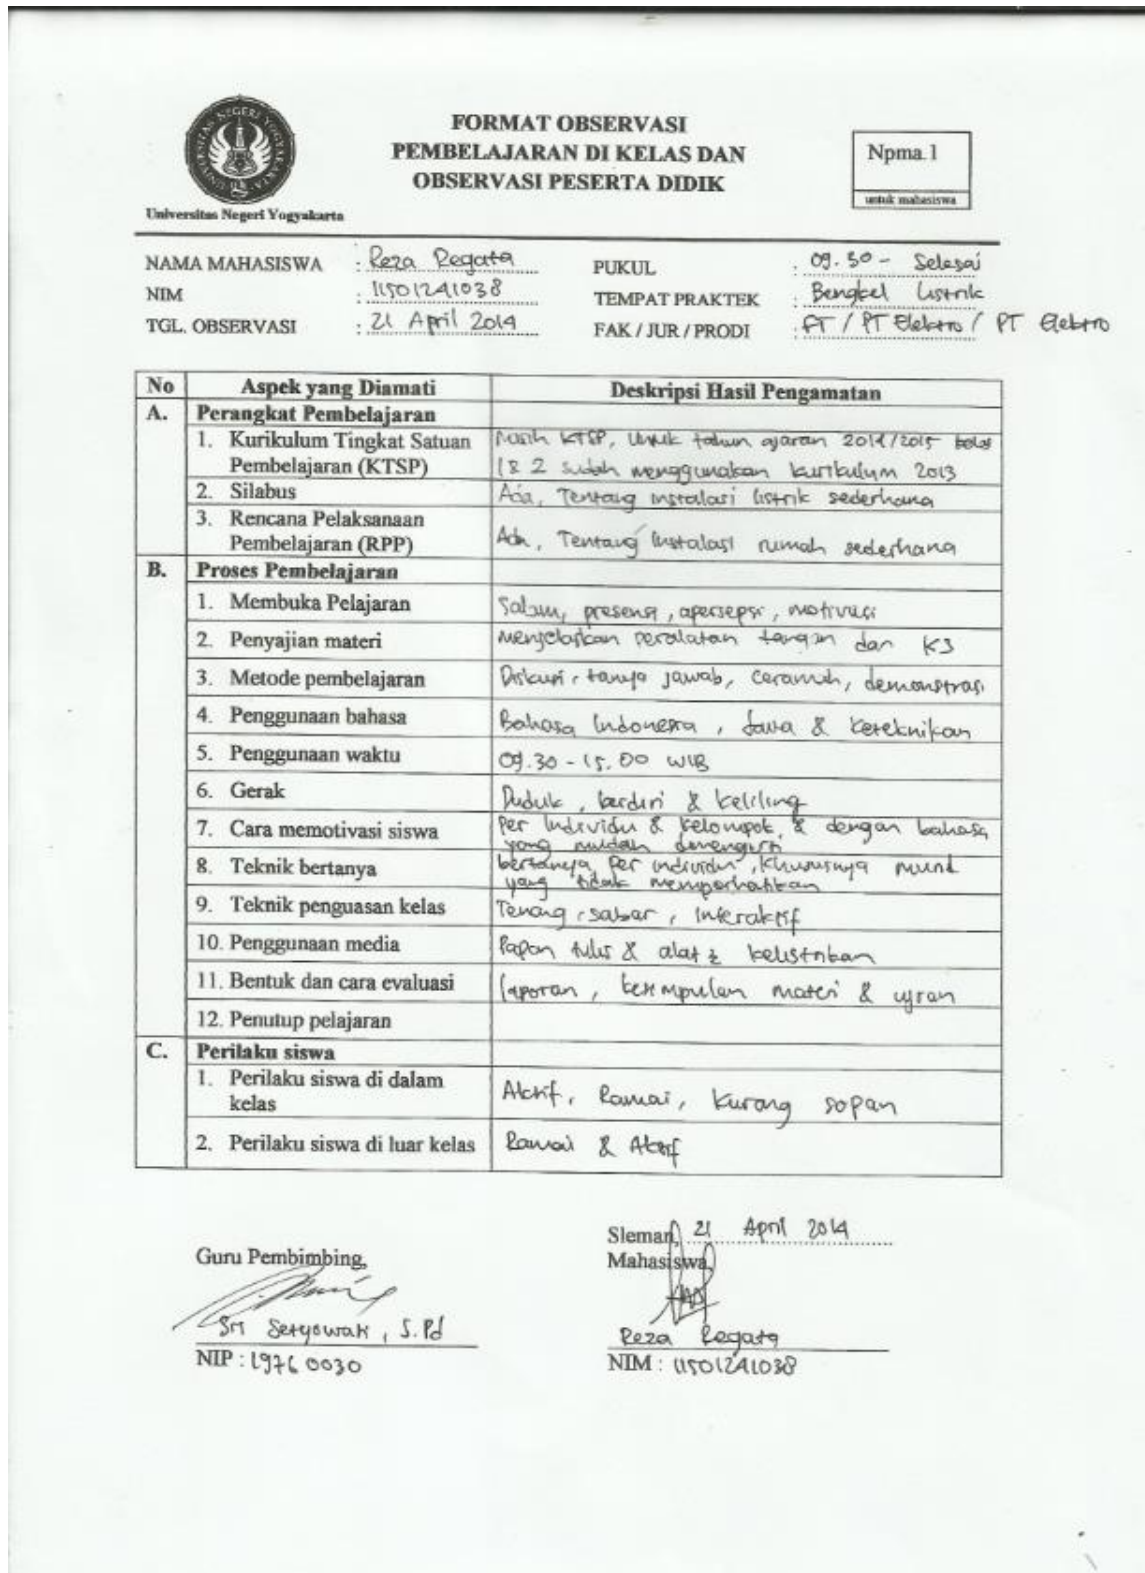 FORMAT OBSERVASI
PEMBELAJARAN DI KELAS DAN
OBSERVASI PESERTA DIDIK
Npma.1
untuk mahasiswa
UNIVERSITAS NEGERI YOGYAKARTA
Universitas Negeri Yogyakarta
NAMA MAHASISWA : Reza Regata
NIM : 11501241038
TGL. OBSERVASI : 21 April 2014
PUKUL : 09.30 - Selesai
TEMPAT PRAKTEK : Bengkel Listrik
FAK / JUR / PRODI : FT / PT Elektro / PT Elektro
No Aspek yang Diamati Deskripsi Hasil Pengamatan
A. Perangkat Pembelajaran
1. Kurikulum Tingkat Satuan
Pembelajaran (KTSP)
Masih KTSP, Untuk tahun ajaran 2014/2015 kelas
1 & 2 sudah menggunakan kurikulum 2013
2. Silabus Ada, Tentang instalasi listrik sederhana
3. Rencana Pelaksanaan
Pembelajaran (RPP)
Ada, Tentang Instalasi rumah sederhana
B. Proses Pembelajaran
1. Membuka Pelajaran Salam, presensi, apersepsi, motivasi
2. Penyajian materi menjelaskan peralatan tangan dan K3
3. Metode pembelajaran Diskusi, tanya jawab, ceramah, demonstrasi
4. Penggunaan bahasa Bahasa Indonesia, Jawa & keteknikan
5. Penggunaan waktu 09.30 - 15.00 WIB
6. Gerak Duduk, berdiri & keliling
7. Cara memotivasi siswa Per Individu & kelompok, & dengan bahasa
yang mudah dimengerti
8. Teknik bertanya bertanya per individu, khususnya murid
yang tidak memperhatikan
9. Teknik penguasan kelas Tenang, sabar, interaktif
10. Penggunaan media Papan tulis & alat2 kelistrikan
11. Bentuk dan cara evaluasi laporan, kesimpulan materi & ujian
12. Penutup pelajaran
C. Perilaku siswa
1. Perilaku siswa di dalam
kelas
Aktif, Ramai, kurang sopan
2. Perilaku siswa di luar kelas Ramai & Aktif
Sleman, 21 April 2014
Guru Pembimbing,
Mahasiswa,
Sri Setyowati, S.Pd
Reza Regata
NIP : 1976 0030
NIM : 11501241038